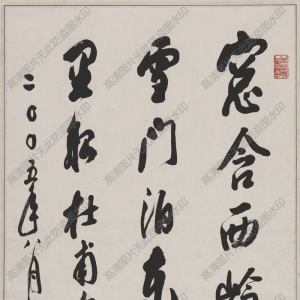 窗含西岭
雪门泊东
里船杜甫
二〇〇五年八月
高清图片无此防盗图水印